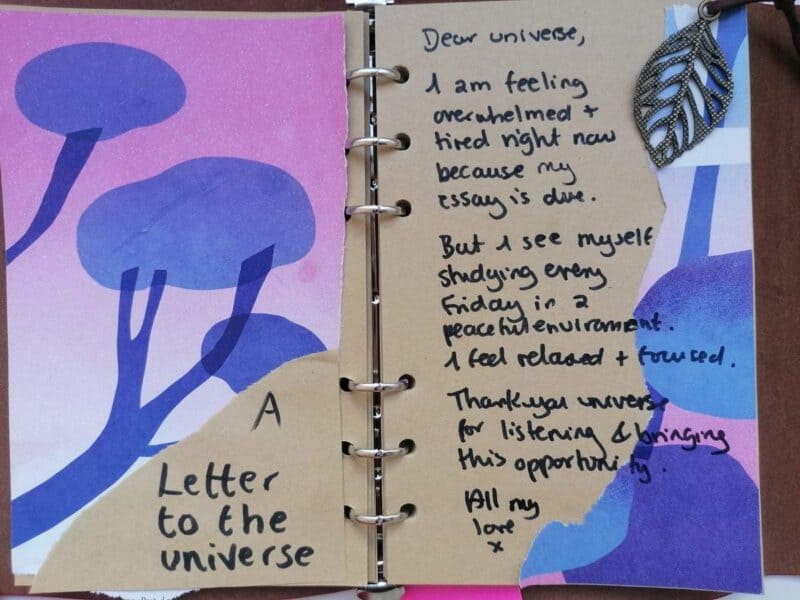 A
Letter
to the
universe
Dear universe,
I am feeling
overwhelmed +
tired right now
because my
essay is due.
But I see myself
studying every
Friday in a
peaceful enviroment.
I feel relaxed + focused.
Thank you universe
for listening & bringing
this opportunity.
All my
love
x